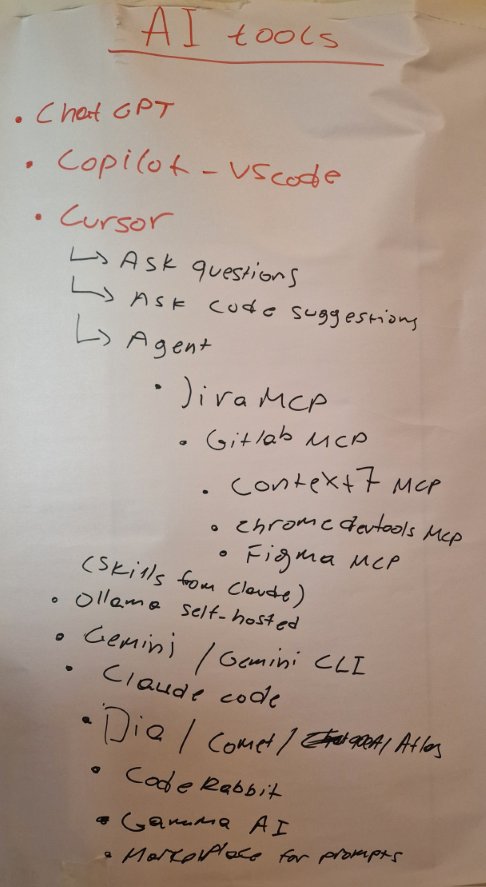 AI tools
• Chat GPT
• Copilot - VScode
• Cursor
↳ Ask questions
↳ Ask code suggestions
↳ Agent
• Jira MCP
• Gitlab MCP
• Context7 MCP
• chromedevtools MCP
• Figma MCP
(skills from Claude)
• Ollama self-hosted
• Gemini / Gemini CLI
• Claude code
• Dia / Comet / Atlas
• CodeRabbit
• Gamma AI
• Marketplace for prompts